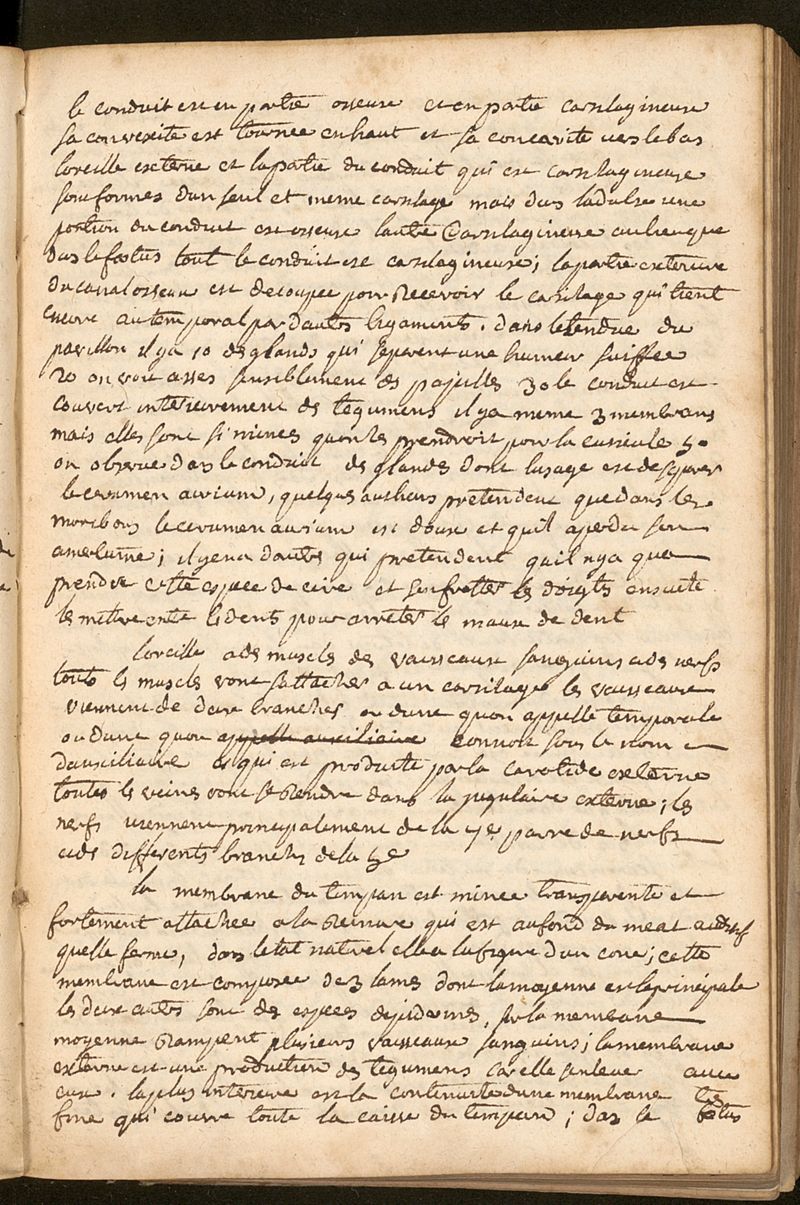 le conduit est en partie osseuse et en partie cartilagineuse
sa convexité est tournée en haut et sa concavité vers le bas
loreille externe et la partie du conduit qui est cartilagineuse
sont formés dun seul et meme cartilage mais dans ladulte une
portion du conduit est osseuse lautre cartilagineuse au lieu que
dans le foetus tout le conduit est cartilagineuse; la partie exterieure
du canal osseux est decoupée pour recevoir le cartilage qui tient
encore au temporal par dautres ligaments. dans letendue du
pavillon il ya 10 des glands qui separent une humeur suiffée
20 on voit asses sensiblement des papilles 30 le conduit est
couvert interieurement de tegumens il ya meme 3 membrans
mais elles sont si minces quon les prendroit pour la cuticule 50
on observe dans le conduit des glandes dont lusage est de separer
le cerumen aurium, quelques autheurs pretendent que dans les
moribons le cerumen aurium est doux et quil a perdu son
amertume; il yena dautres qui pretendent quil nya qua
prendre cette espece de cire et senfrotter les doigts ensuite
les mettre entre les dents pour arreter le maux de dent
loreille a des muscles des vaisseaux sanguins et des nerfs
touts les muscles vont sattacher a un cartilage les vaisseaux
viennent de deux branches ou dune quon appelle temporale
ou dune quon appelle auxiliaire connoit sous le nom
dauxiliaire et qui est produite par la carotide externe
toutes les veines vont se rendre dans la jugulaire externe; les
nerfs viennent principalement de la 7e paire de nerfs
et des differents branches de la 5e
la membrane du timpan est mince transparente et
fortement attachée a la reinure qui est au fond du meat auditif
quelle ferme, dans letat naturel elle a la figure dun cone; cette
membrane est composée de 3 lames dont la moyenne est la principale
les deux autres sont des especes depidermes, sur la membrane
moyenne rampent plusieurs vaisseaux sanguins; la membrane
externe est une production des tegumens car elle senleve avec
eux. la plus interieure est la continuité dune membrane tres
fine qui couvre toute la caisse du timpan; dans le foetus